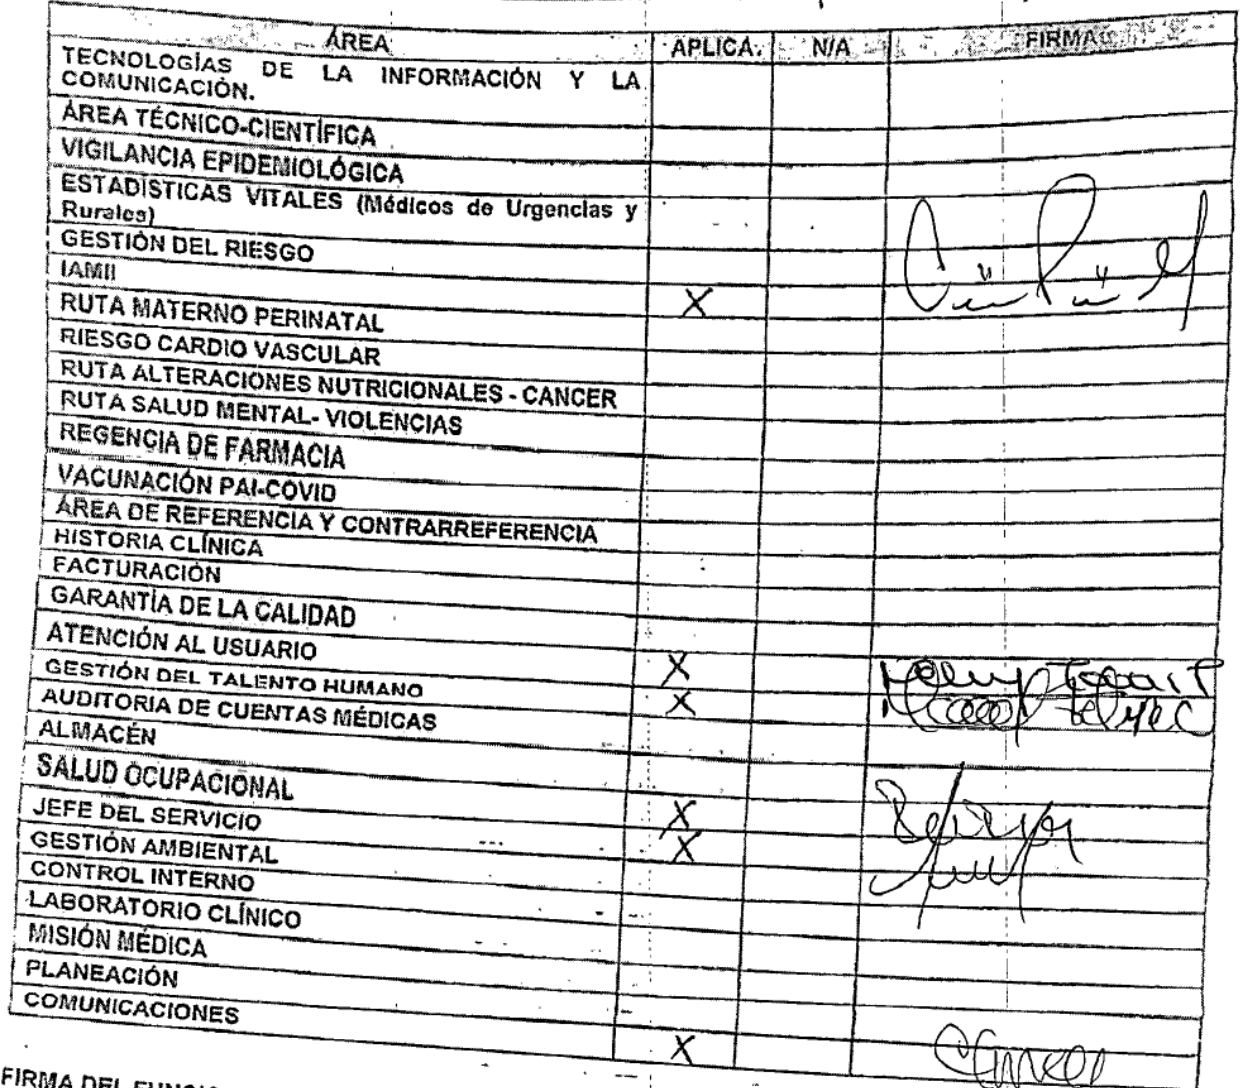 ÁREA APLICA. N/A FIRMA
TECNOLOGÍAS DE LA INFORMACIÓN Y LA
COMUNICACIÓN.
ÁREA TÉCNICO-CIENTÍFICA
VIGILANCIA EPIDEMIOLÓGICA
ESTADÍSTICAS VITALES (Médicos de Urgencias y
Rurales)
GESTIÓN DEL RIESGO
IAMII
X
RUTA MATERNO PERINATAL
RIESGO CARDIO VASCULAR
RUTA ALTERACIONES NUTRICIONALES - CANCER
RUTA SALUD MENTAL- VIOLENCIAS
REGENCIA DE FARMACIA
VACUNACIÓN PAI-COVID
ÁREA DE REFERENCIA Y CONTRARREFERENCIA
HISTORIA CLÍNICA
FACTURACIÓN
GARANTÍA DE LA CALIDAD
ATENCIÓN AL USUARIO
X
GESTIÓN DEL TALENTO HUMANO
X
AUDITORIA DE CUENTAS MÉDICAS
ALMACÉN
SALUD OCUPACIONAL
X
JEFE DEL SERVICIO
X
GESTIÓN AMBIENTAL
CONTROL INTERNO
LABORATORIO CLÍNICO
MISIÓN MÉDICA
PLANEACIÓN
COMUNICACIONES
X
FIRMA DEL